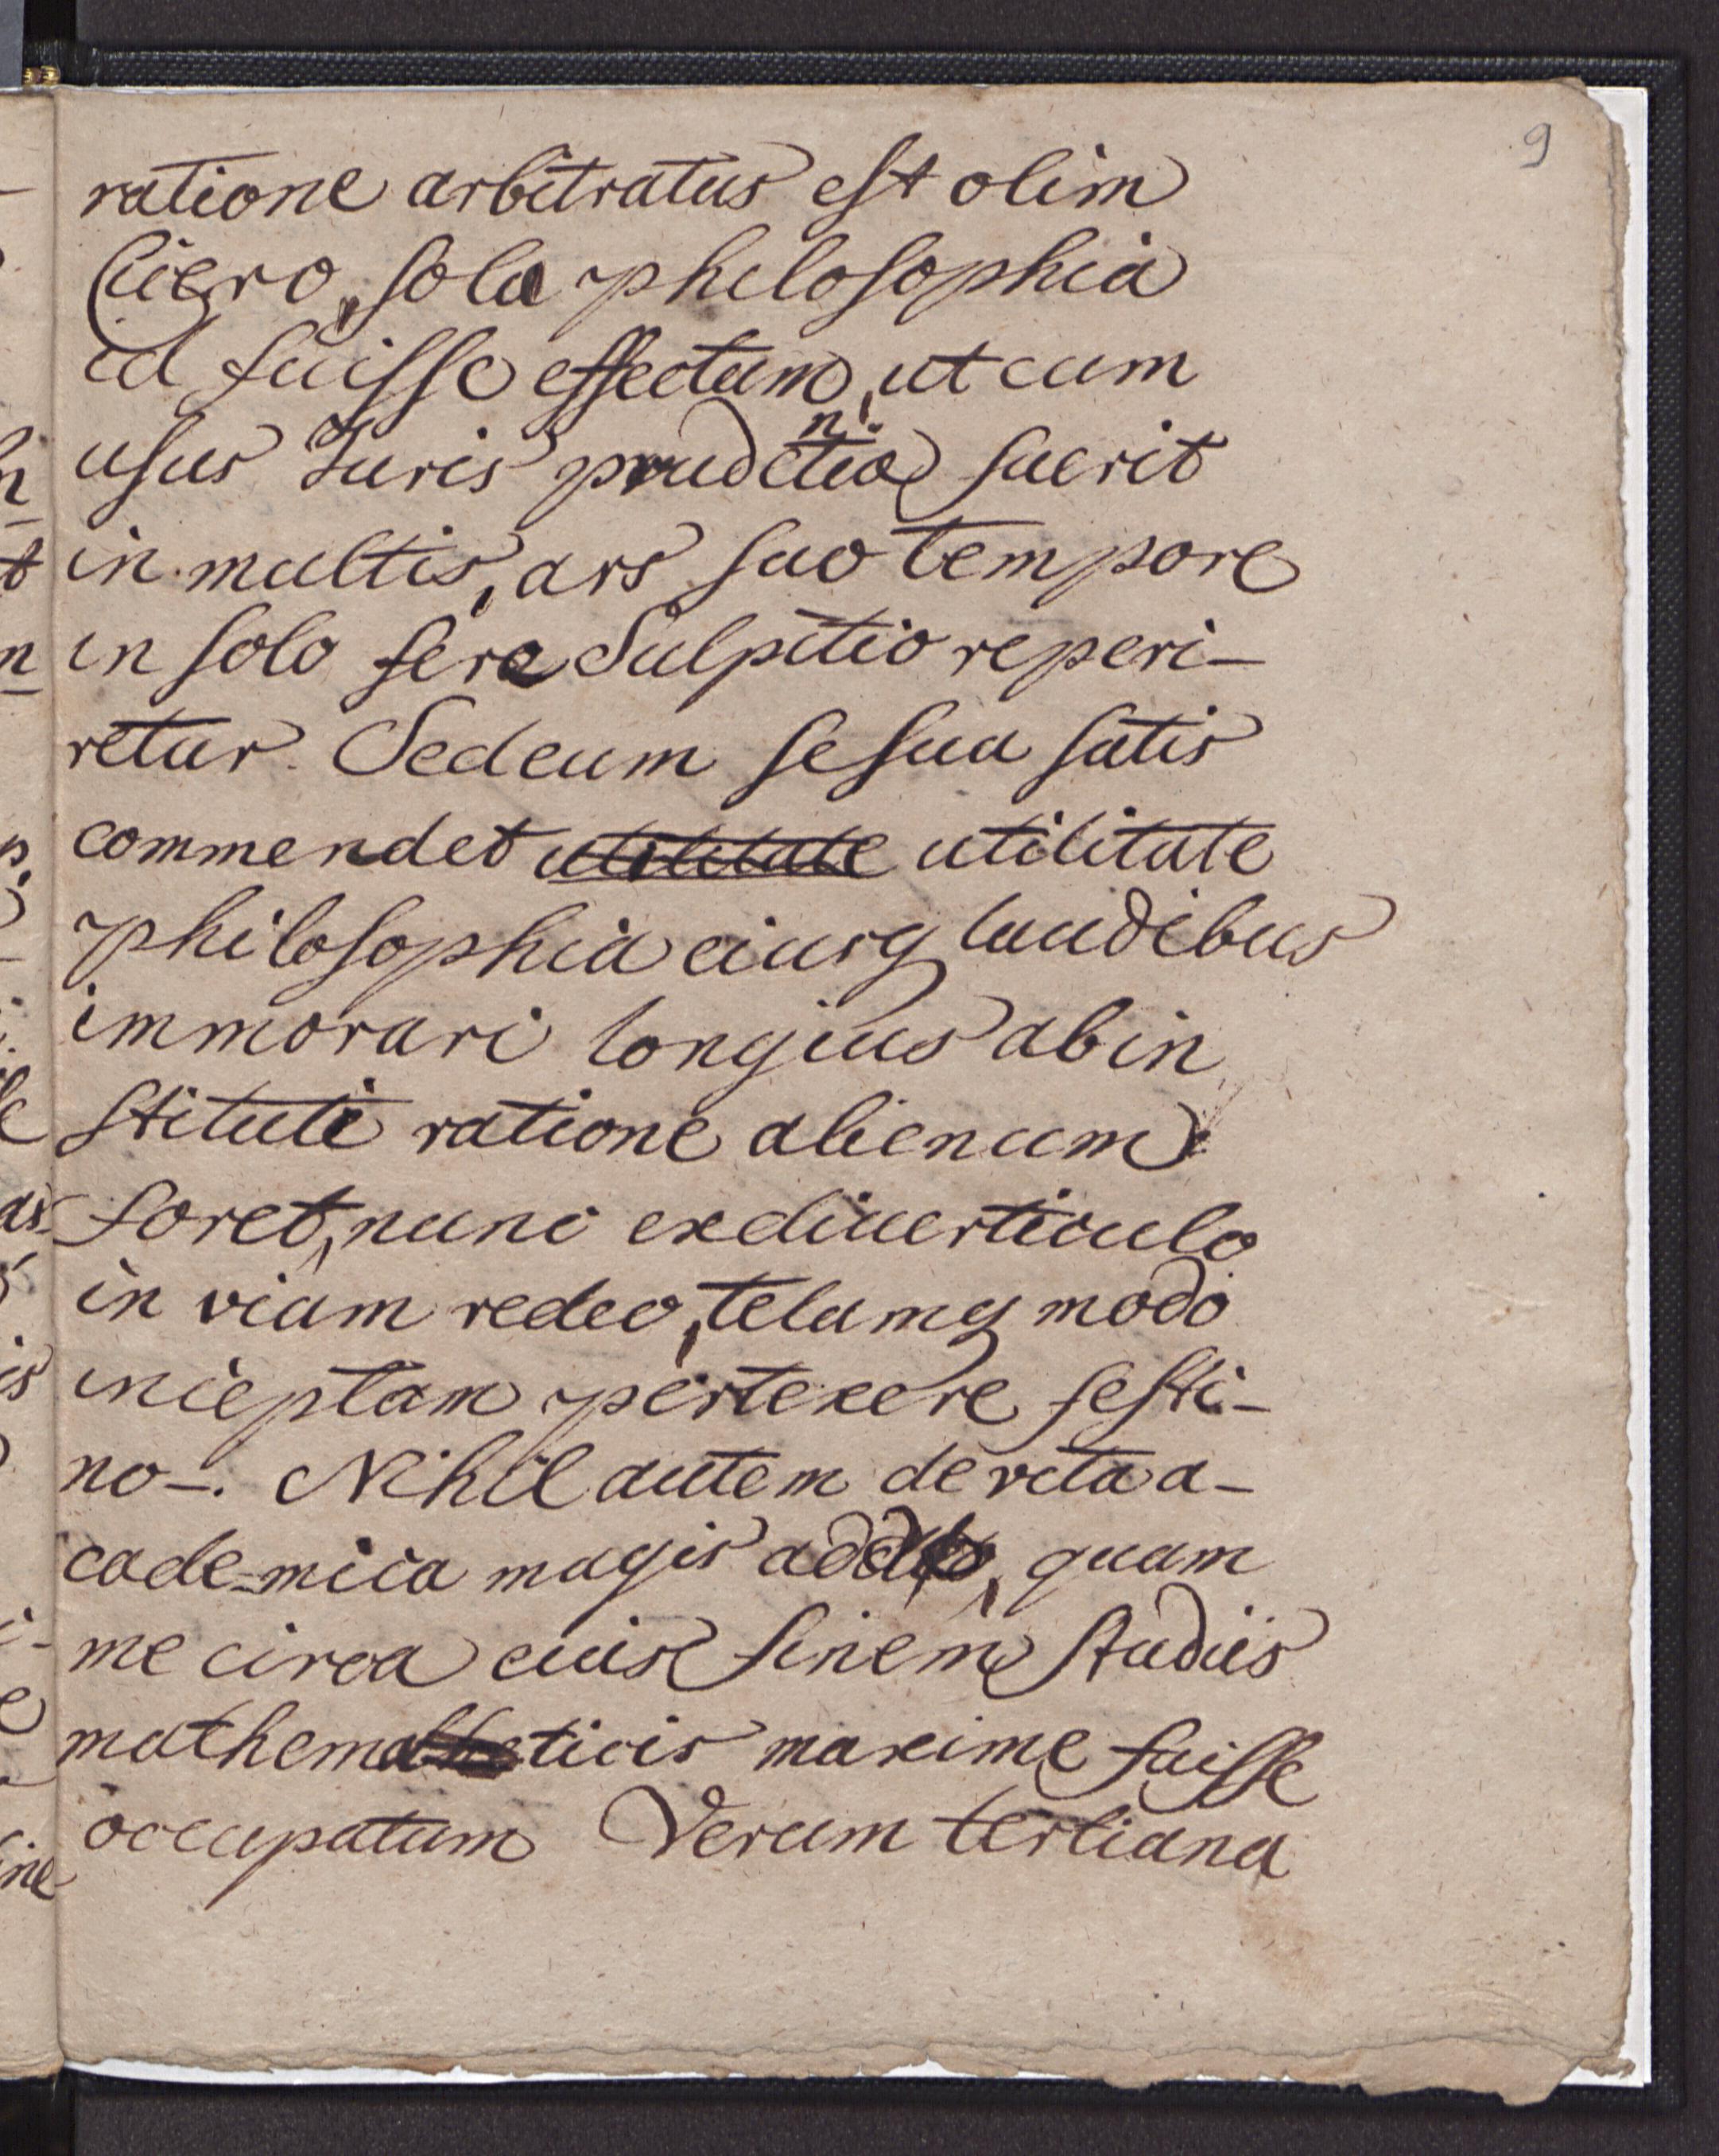 9
ratione arbitratus est olim
Cicero, sola philosophia
id fuisse effectum, ut cum
usus Juris prudentia fuerit
in multis, ars suo tempore
in solo fere Sulpitio reperi-
retur. Sed cum se sua satis
commendet utilitate utilitate
philosophia eiusq laudibus
immorari longius ab in
stituti ratione alienum
foret, nunc ex diverticulo
in viam redeo, telamq modo
inceptam pertexere festi-
no-. Nihil autem de vita a-
cade-mica magis addo, quam
me circa eius finem studiis
mathematicis maxime fuisse
occupatum Verum tertiana